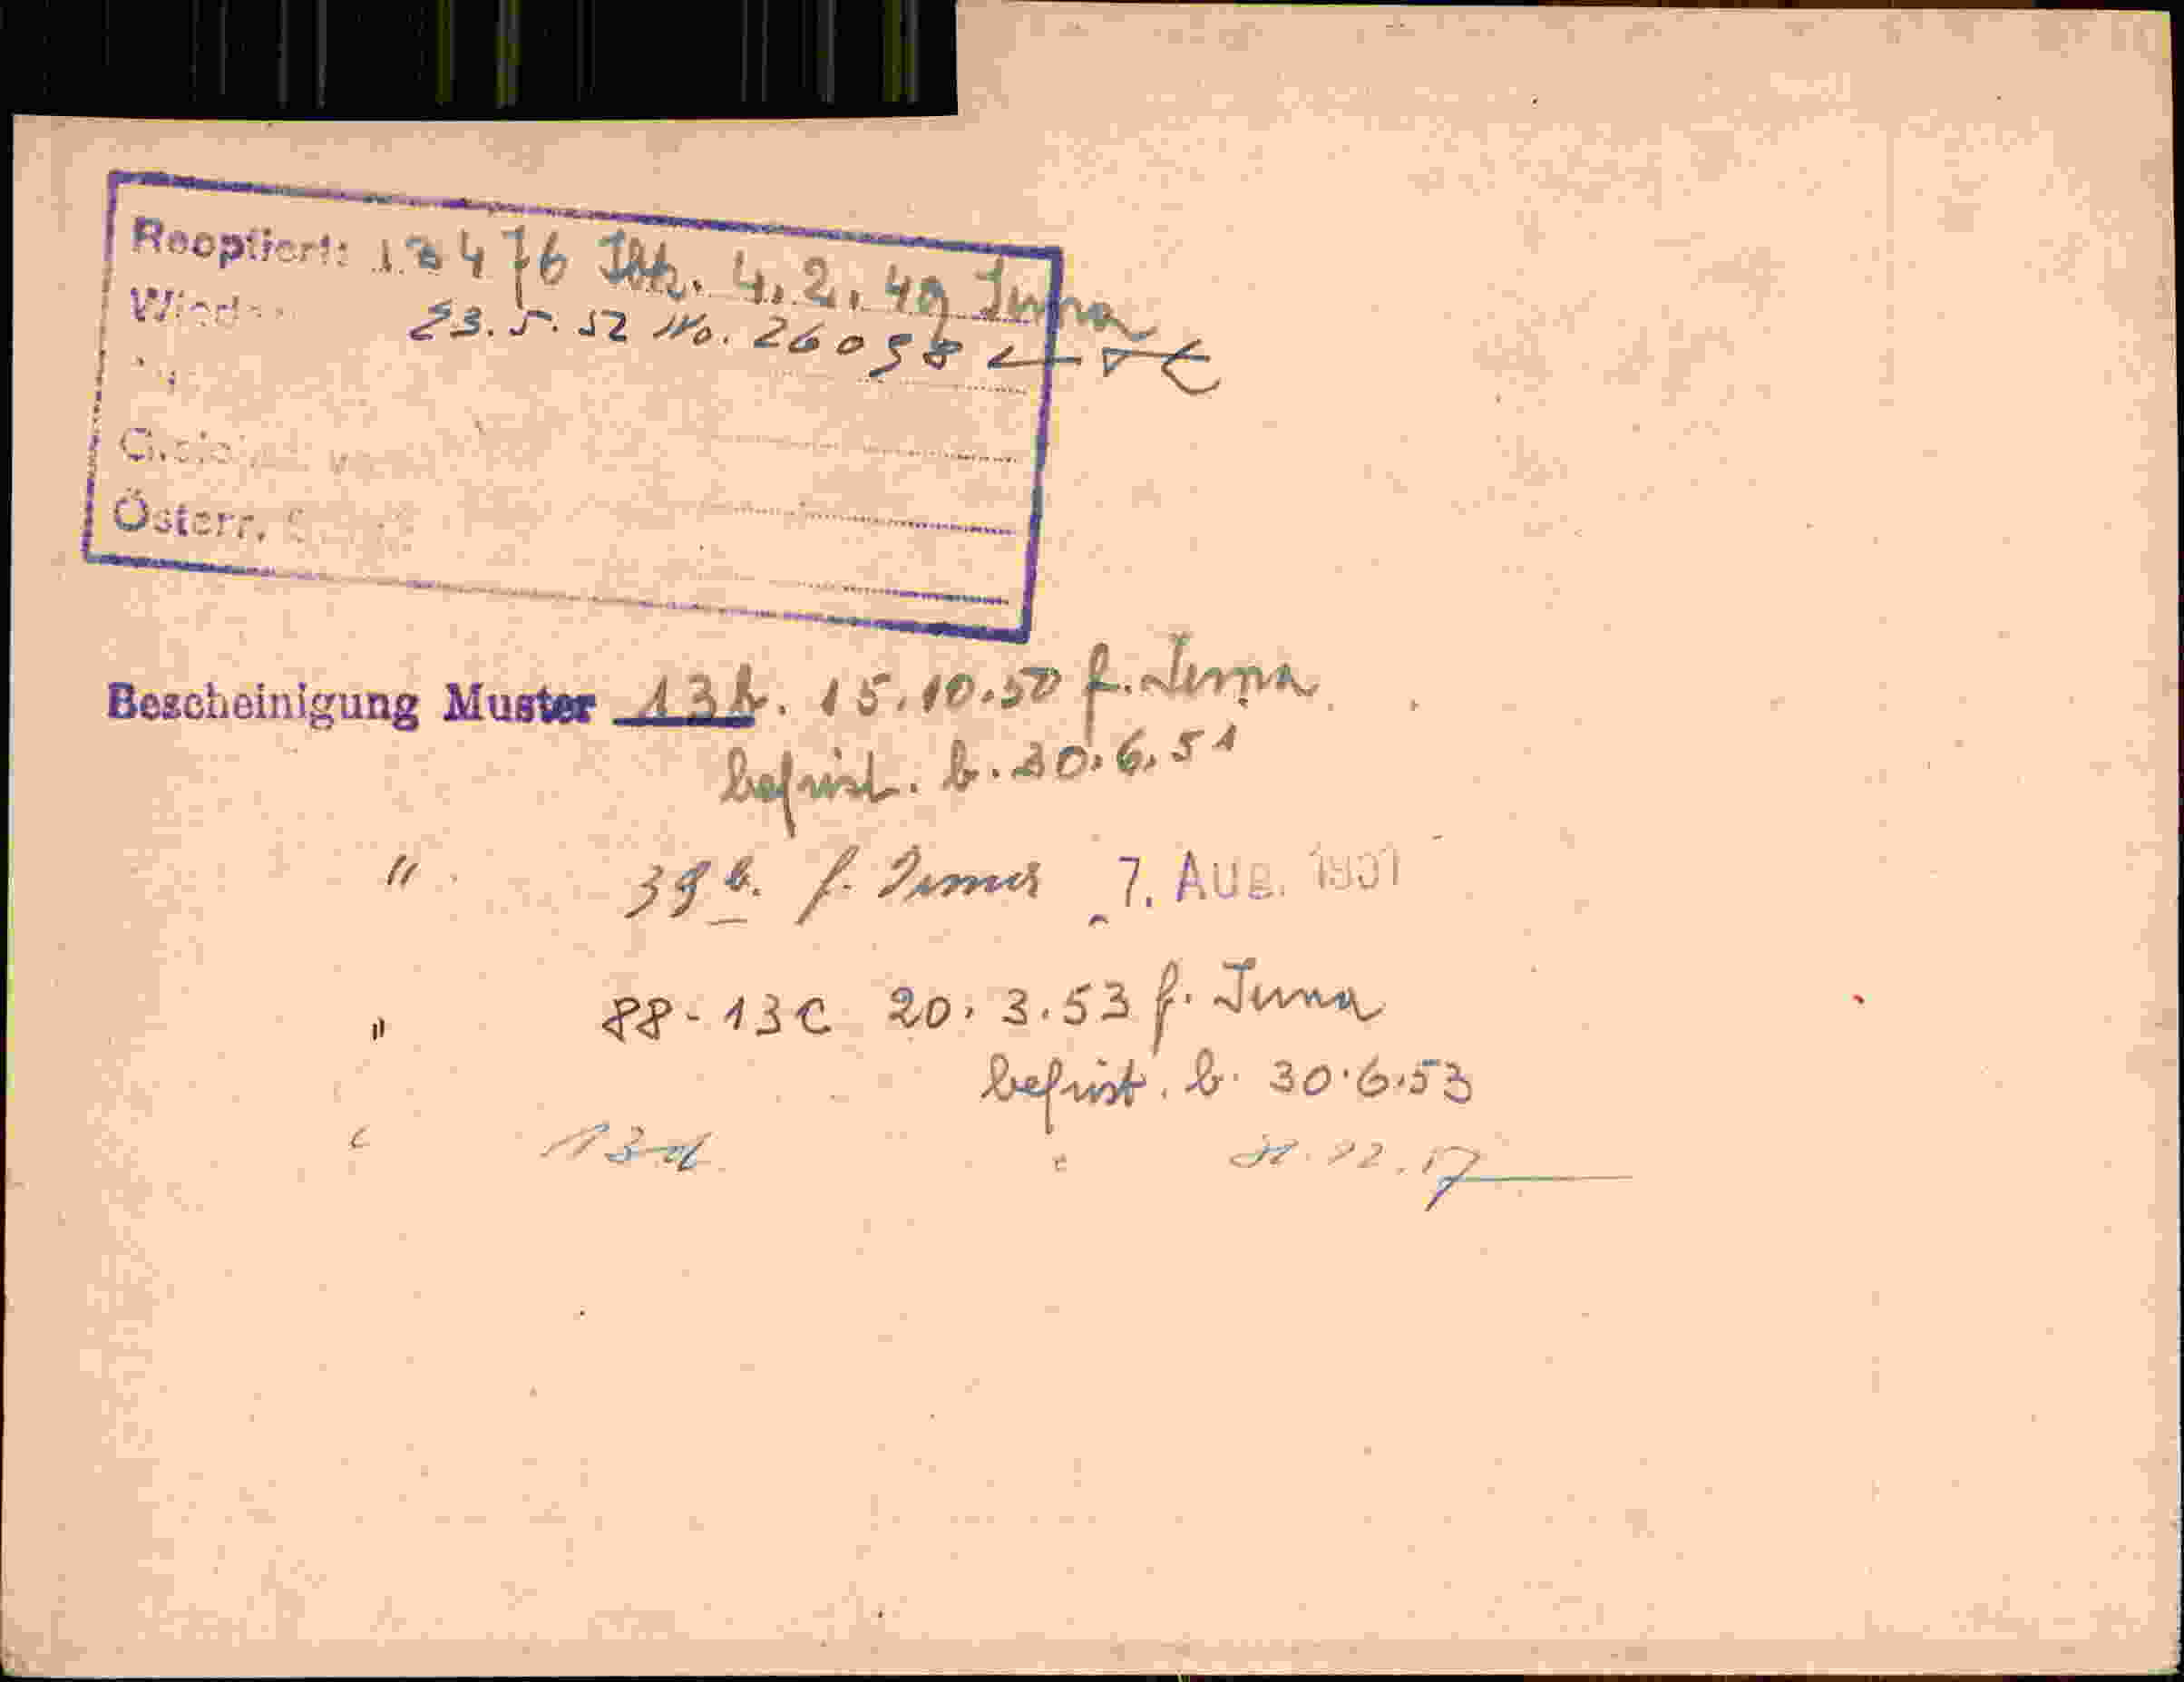 Reoptiert: 13476 Ibk. 4.2.49 Irma
23.5.52 No. 26098
Österr.
Bescheinigung Muster 13b. 15.10.50 f. Irma
befrist. b. 30.6.51
" 39b. f. Irma 7. Aug. 1951
" 88-13c 20.3.53 f. Irma
befrist. b. 30.6.53
13d.